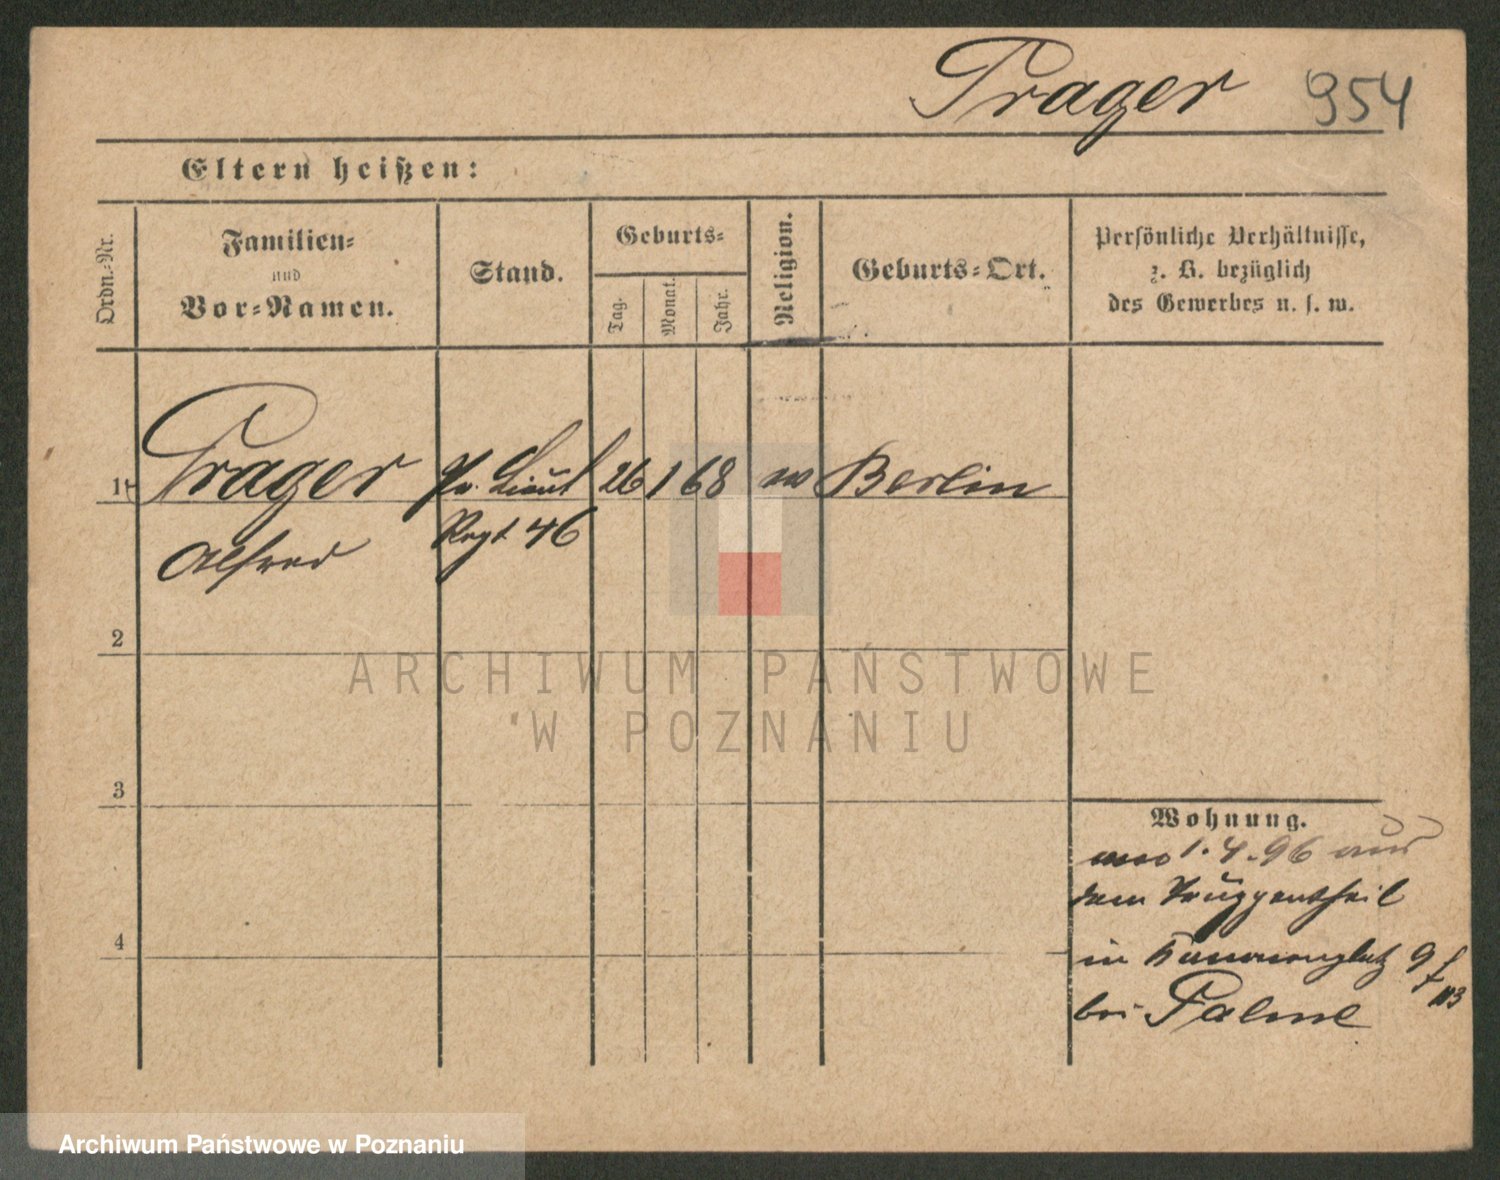 Prager 954
Eltern heißen:
Ordn.-Nr.
Familien-
und
Vor-Namen.
Stand.
Geburts-
Tag.
Monat.
Jahr.
Religion.
Geburts-Ort.
Persönliche Verhältnisse,
z. B. bezüglich
des Gewerbes u. s. w.
1 Prager Pr. Lieut 26 1 68 Berlin
Alfred Regt 46
2
3
4
Wohnung.
1.4.96 aus
dem Truppentheil
in 9
bei Palme
ARCHIWUM PAŃSTWOWE
W POZNANIU
Archiwum Państwowe w Poznaniu